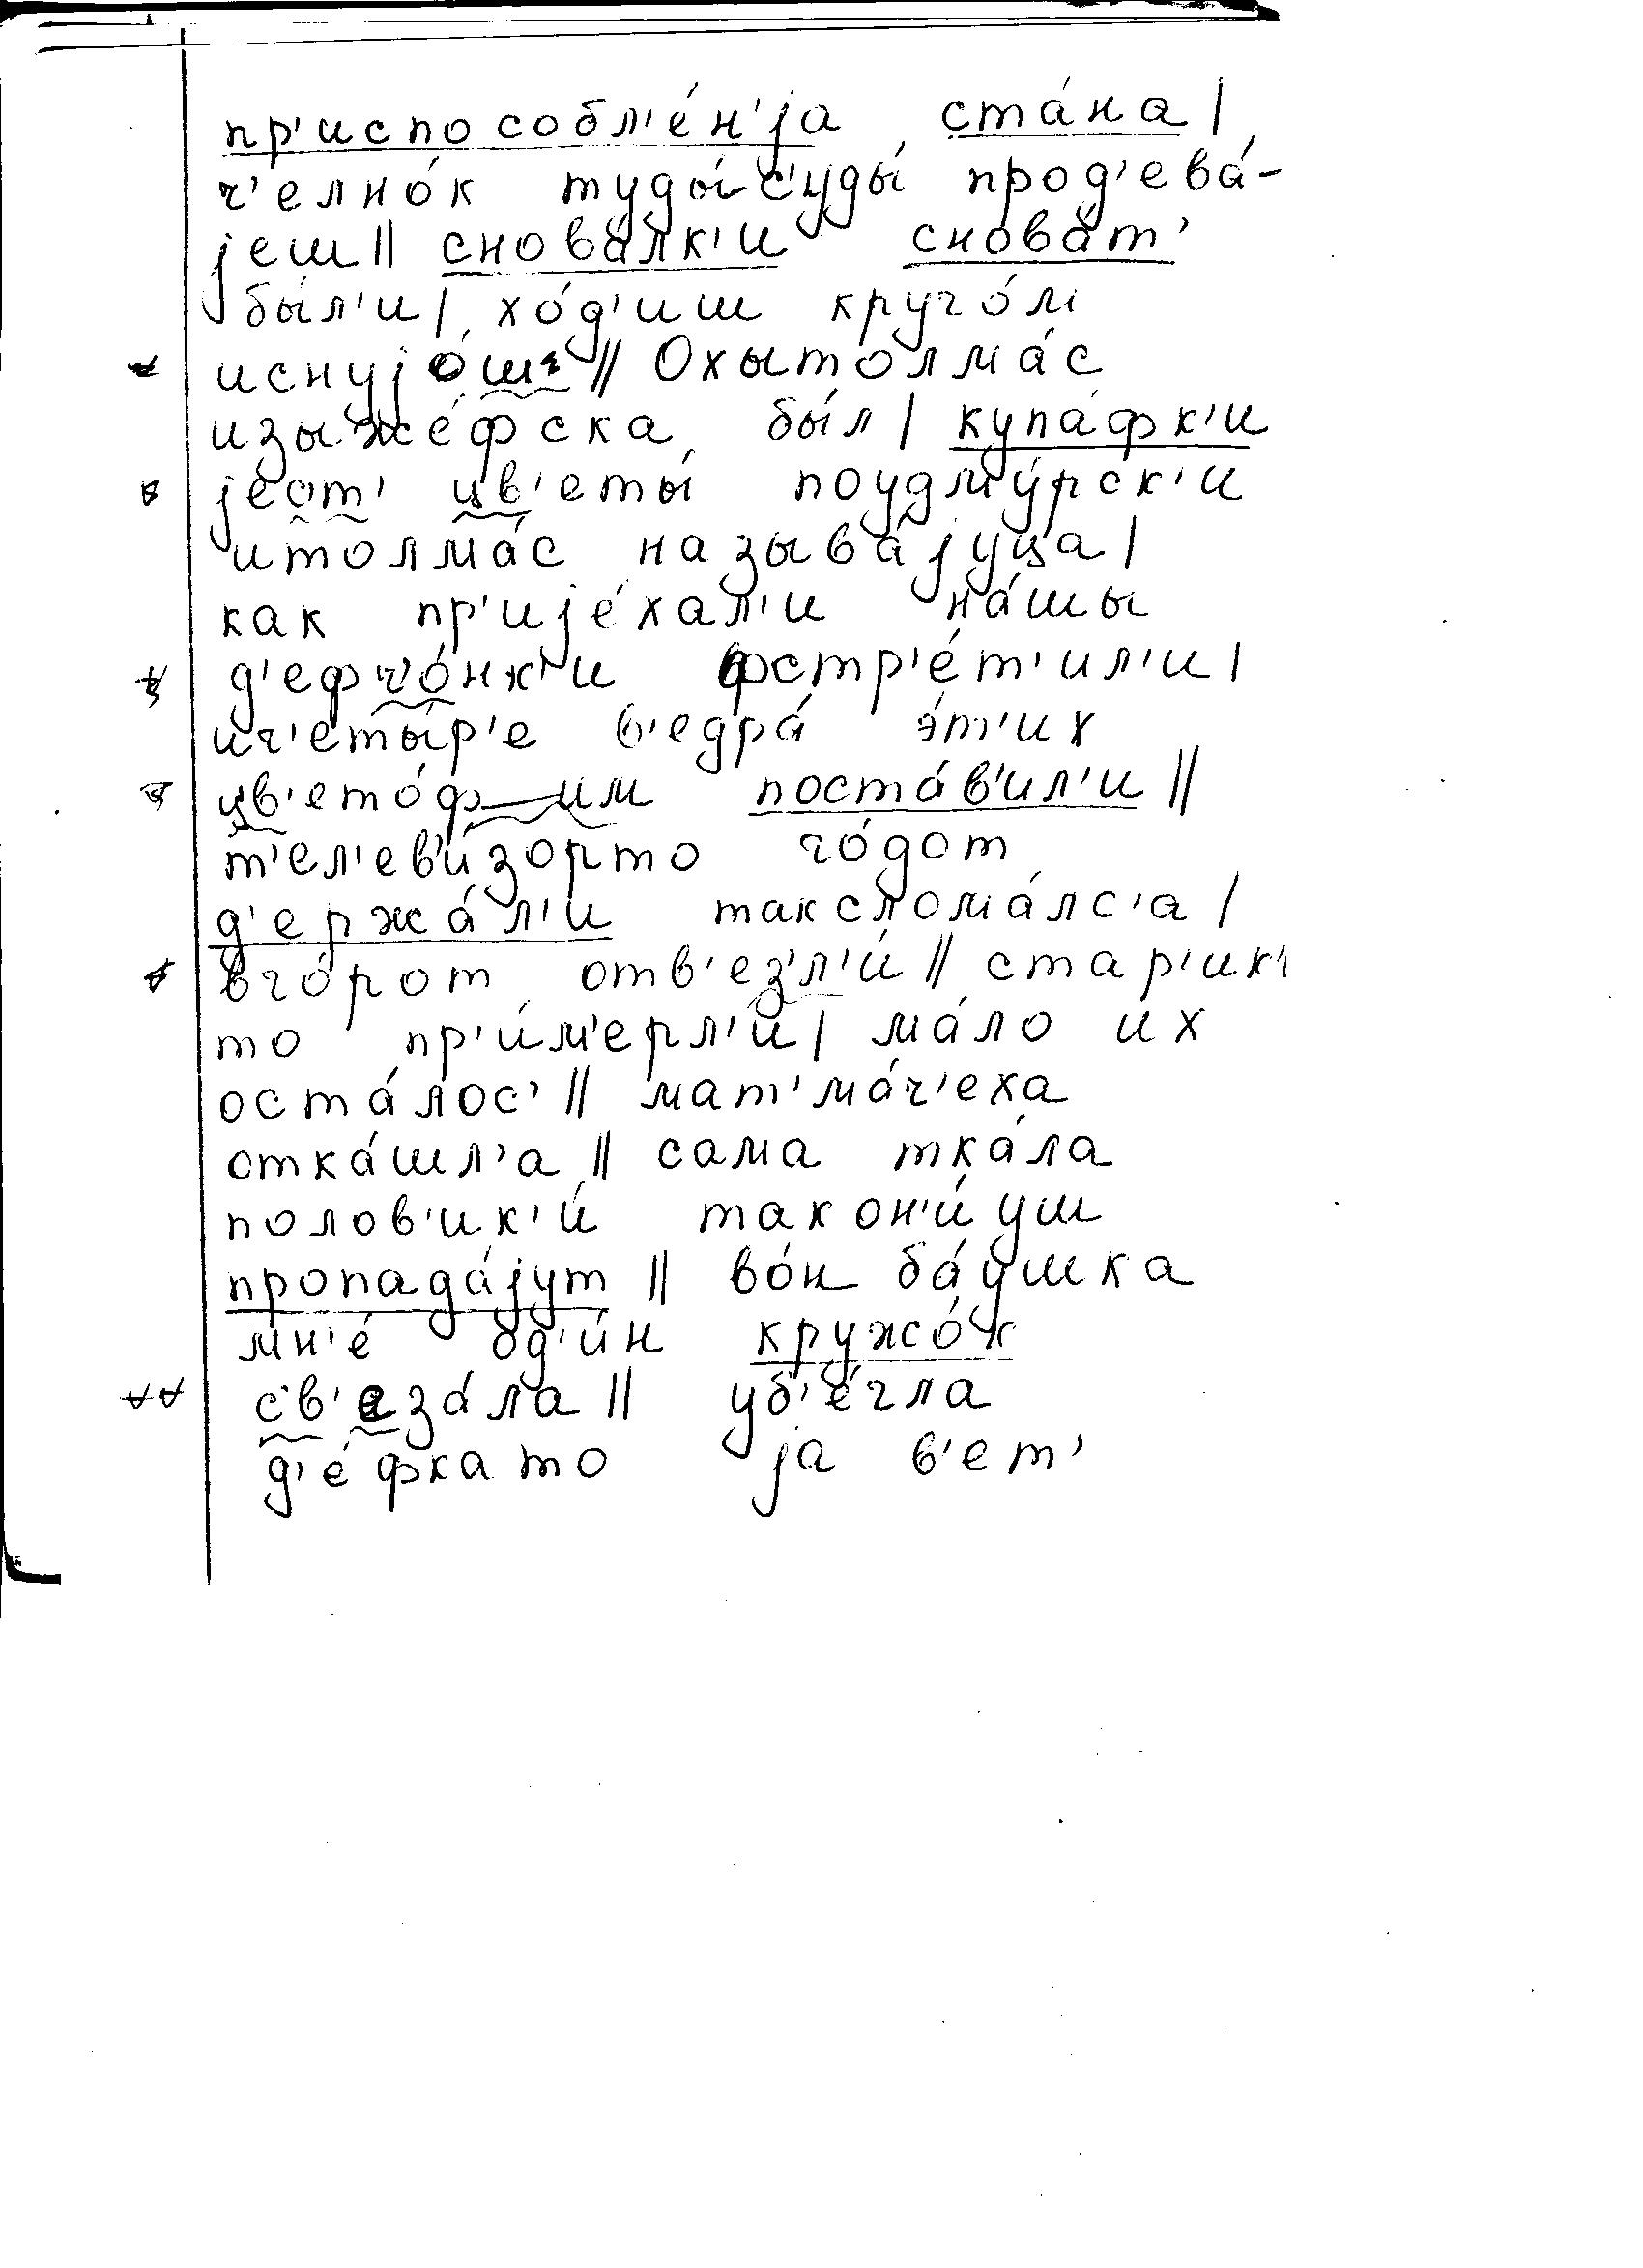 пр'испособл'е́н'jа ста́на |
ч'елно́к туды́с'уды́ прод'ева́-
jеш || снова́лк'и снова́т'
бы́л'и |, хо́д'иш круго́м
иснуjо́ш || Охытолма́с
изыже́фска бы́л | купа́фк'и
jест' цв'еты́ поудму́рск'и
итолма́с называ́jуца |
как пр'иjе́хал'и на́шы
д'ефч'о́нк'и фстр'е́т'ил'и |
ич'еты́р'е в'едра́ э́т'их
цв'ето́ф им поста́в'ил'и ||
т'ел'ев'и́зорто го́дот
д'ержа́л'и такслома́лс'а |
вго́рот отв'ез'л'и́ || стар'ик'и
то пр'и́м'ерл'и | ма́ло их
оста́лос' || мат'ма́ч'еха
отка́шл'а || сама тка́ла
полов'ик'и́ такон'и́ уш
пропада́jут || во́н ба́ушка
мн'е́ од'и́н кружо́к
св'еза́ла || уб'е́гла
д'е́фкато jа в'ет'